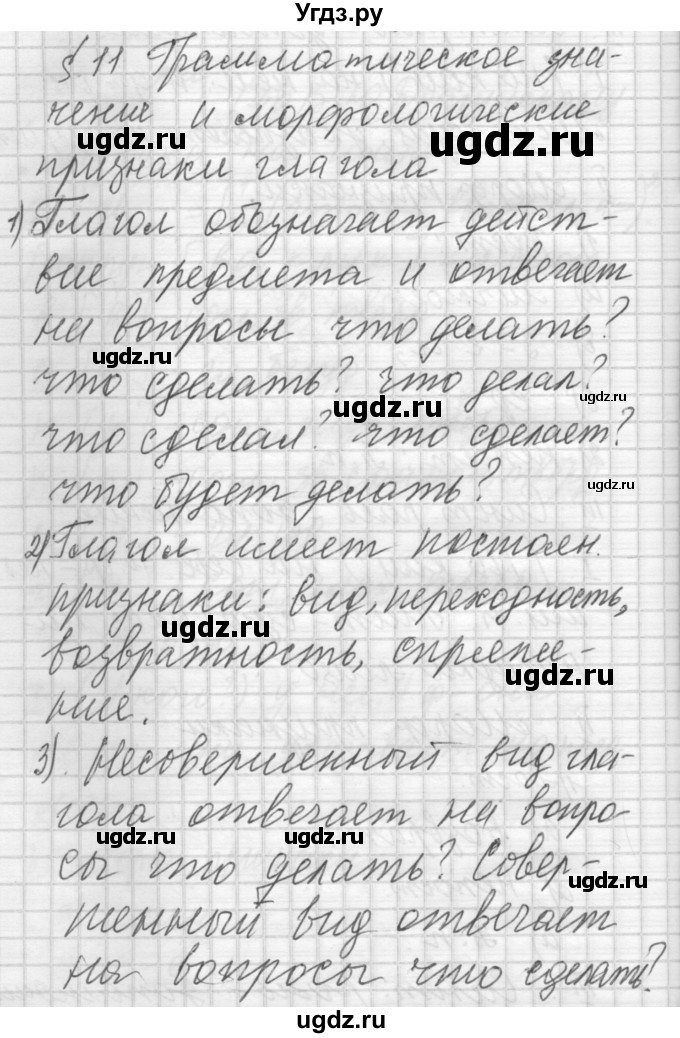 Угдз.ру
§ 11 Грамматическое зна-
чение и морфологические
признаки глагола
1) Глагол обозначает дейст-
вие предмета и отвечает
на вопросы что делать?
что сделать? что делал?
что сделал? что сделает?
что будет делать?
2) Глагол имеет постоян.
признаки: вид, переходность,
возвратность, спряже-
ние.
3). Несовершенный вид гла-
гола отвечает на вопро
сы что делать? Совер-
шенный вид отвечает
на вопросы что сделать?
ugdz.ru
ugdz.ru
ugdz.ru
ugdz.ru
ugdz.ru
ugdz.ru
ugdz.ru
ugdz.ru
ugdz.ru
ugdz.ru
ugdz.ru
ugdz.ru
ugdz.ru